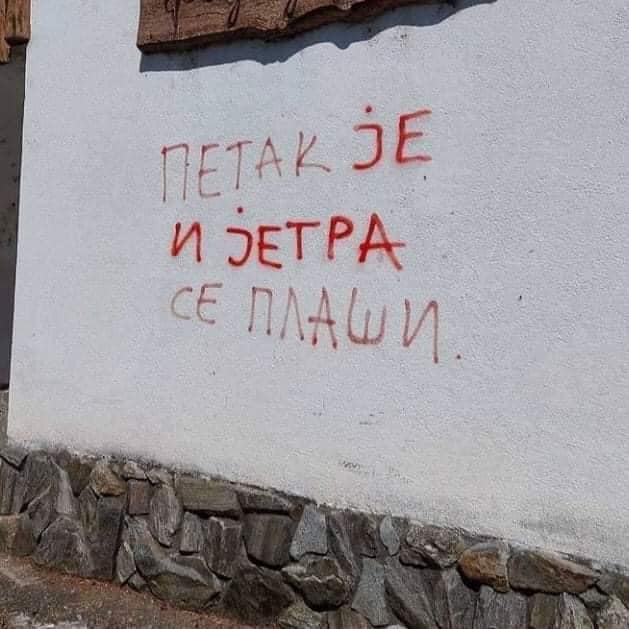 ПЕТАК ЈЕ
И ЈЕТРА
СЕ ПЛАШИ.